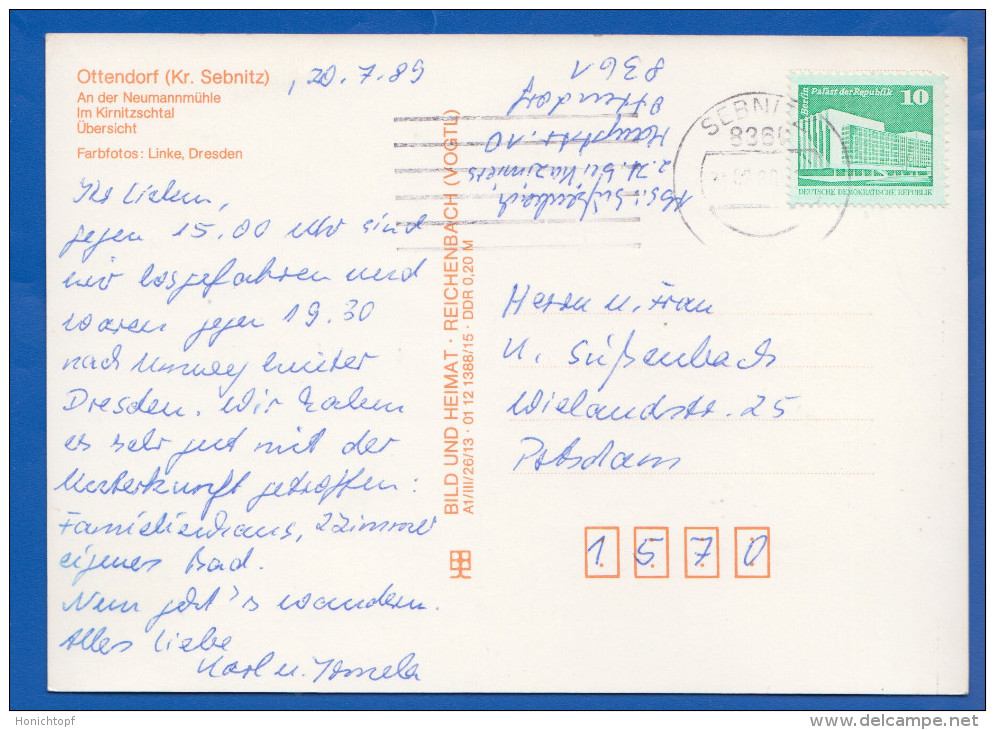 Ottendorf (Kr. Sebnitz)
An der Neumannmühle
Im Kirnitzschtal
Übersicht
Farbfotos: Linke, Dresden
, 20.7.89
Ihr Lieben,
gegen 15.00 Uhr sind
wir losgefahren und
waren gegen 19.30
nach Umweg hinter
Dresden. Wir haben
es sehr gut mit der
Unterkunft getroffen:
Familienhaus, 2 Zimmer
eigenes Bad.
Nun geht's wandern.
Alles Liebe
Karl u.
BILD UND HEIMAT · REICHENBACH (VOGTL)
A1/III/26/13 · 01 12 1388/15 · DDR 0,20 M
Abs.: Süßenbach,
z. Zt. bei
Hauptstr. 10
Ottendorf
8361
SEBNITZ
8360
Berlin Palast der Republik 10
DEUTSCHE DEMOKRATISCHE REPUBLIK
Herrn u. Frau
U. Süßenbach
Wielandstr. 25
Potsdam
1 5 7 0
Honichtopf
www.delcampe.net